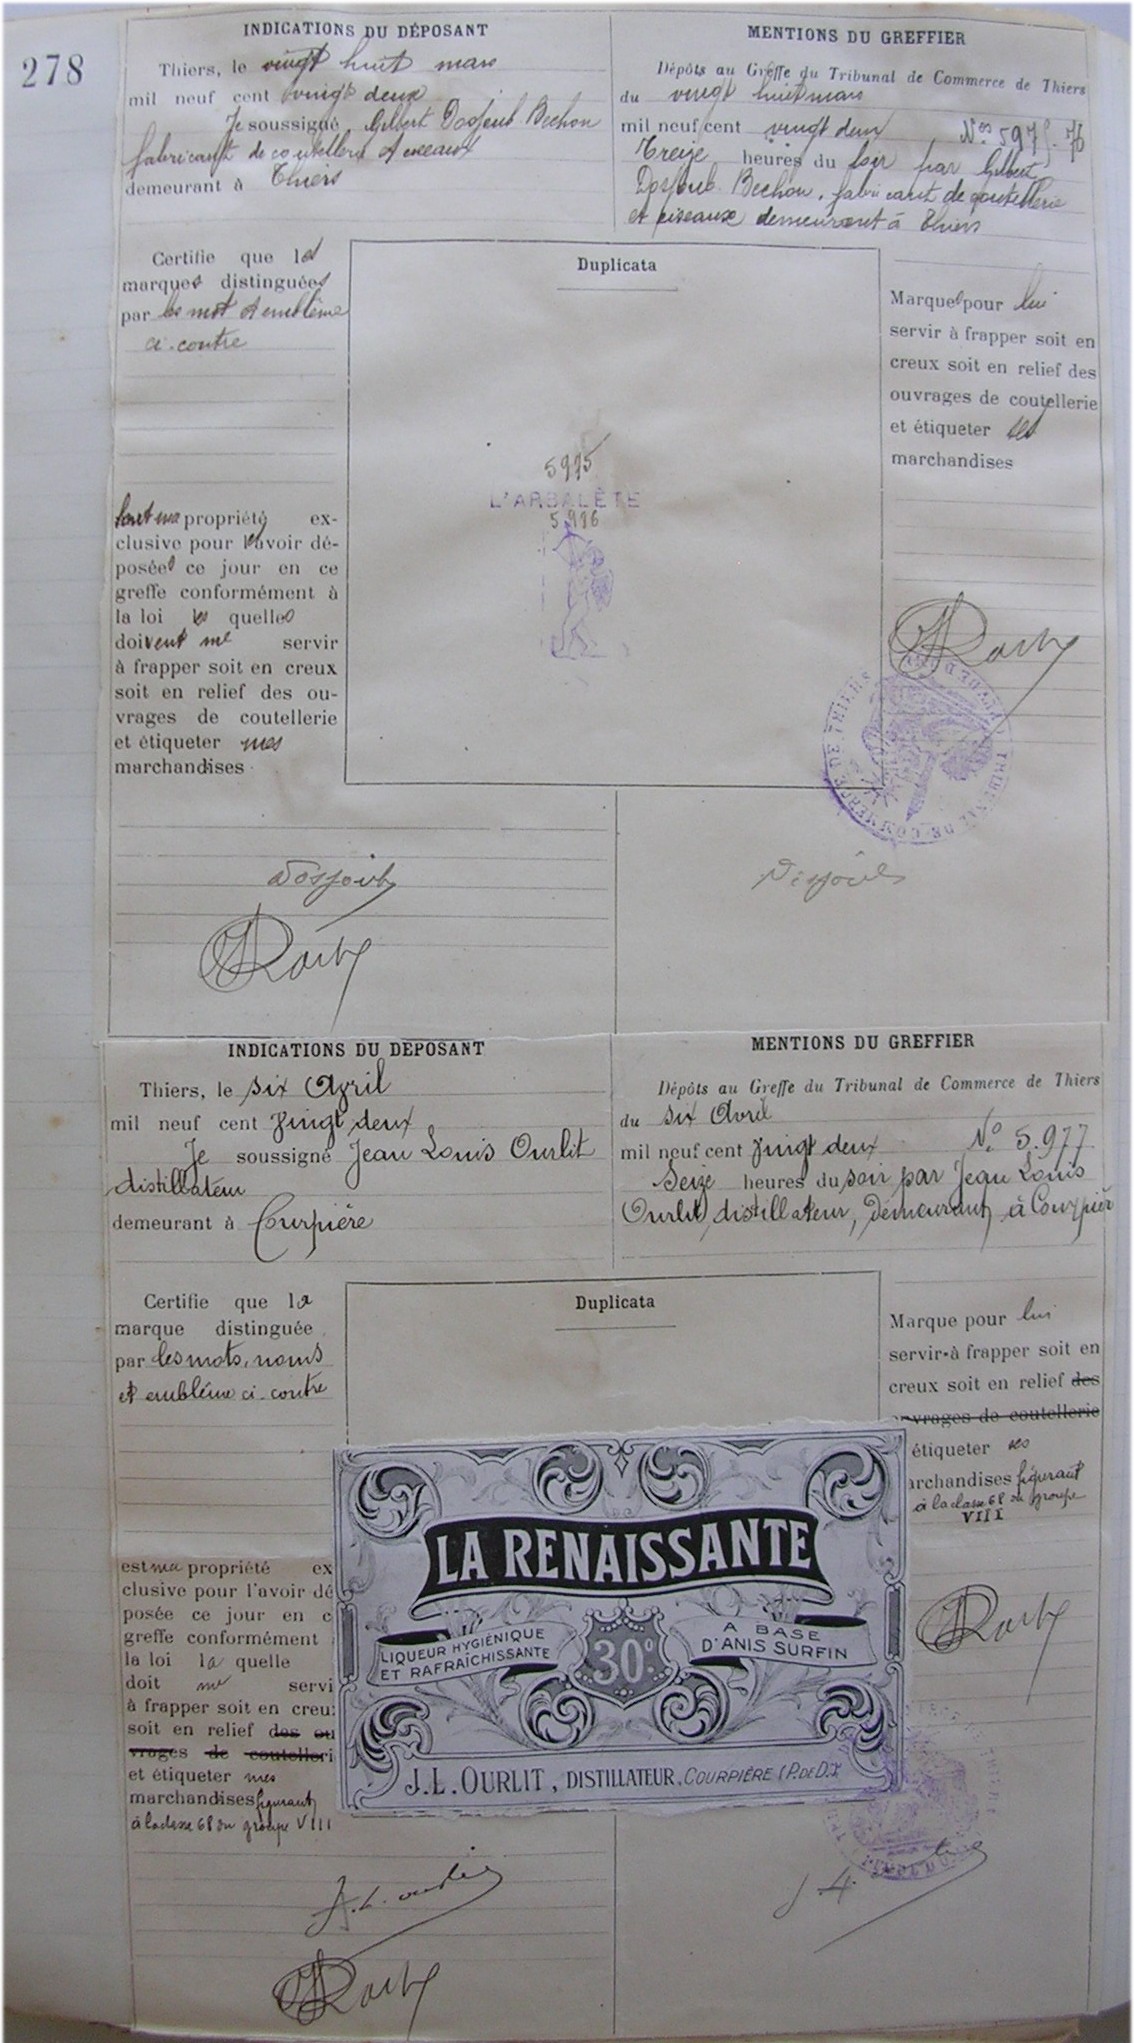 278
INDICATIONS DU DÉPOSANT
Thiers, le vingt huit mars
mil neuf cent vingt deux
Je soussigné Gilbert Dosjoub Bechon
fabricant de coutellerie et ciseaux
demeurant à Thiers
MENTIONS DU GREFFIER
Dépôts au Greffe du Tribunal de Commerce de Thiers
du vingt huit mars
mil neuf cent vingt deux Nos 5975-76
Treize heures du soir par Gilbert
Dosjoub Bechon, fabricant de coutellerie
et ciseaux demeurant à Thiers
Certifie que les
marques distinguées
par les mot et emblème
ci-contre
sont ma propriété ex-
clusive pour les avoir dé-
posées ce jour en ce
greffe conformément à
la loi les quelles
doivent me servir
à frapper soit en creux
soit en relief des ou-
vrages de coutellerie
et étiqueter mes
marchandises
Duplicata
5975
L'ARBALÈTE
5976
Marques pour lui
servir à frapper soit en
creux soit en relief des
ouvrages de coutellerie
et étiqueter ses
marchandises
TRIBUNAL DE COMMERCE DE THIERS
Dosjoub
INDICATIONS DU DÉPOSANT
Thiers, le six Avril
mil neuf cent vingt deux
Je soussigné Jean Louis Ourlit
distillateur
demeurant à Courpière
MENTIONS DU GREFFIER
Dépôts au Greffe du Tribunal de Commerce de Thiers
du six Avril
mil neuf cent vingt deux No 5.977
Seize heures du soir par Jean Louis
Ourlit, distillateur, demeurant à Courpière
Certifie que la
marque distinguée
par les mots, noms
et emblème ci-contre
est ma propriété ex
clusive pour l'avoir dé
posée ce jour en c
greffe conformément
la loi la quelle
doit me servi
à frapper soit en creu
soit en relief des ou
vrages de coutelleri
et étiqueter mes
marchandises figurant
à la classe 68 du groupe VIII
Duplicata
LA RENAISSANTE
LIQUEUR HYGIÉNIQUE
ET RAFRAÎCHISSANTE
30°
A BASE
D'ANIS SURFIN
J.L. OURLIT, DISTILLATEUR, COURPIÈRE (P. DE D.)
Marque pour lui
servir à frapper soit en
creux soit en relief des
ouvrages de coutellerie
étiqueter ses
archandises figurant
à la classe 68 du groupe
VIII